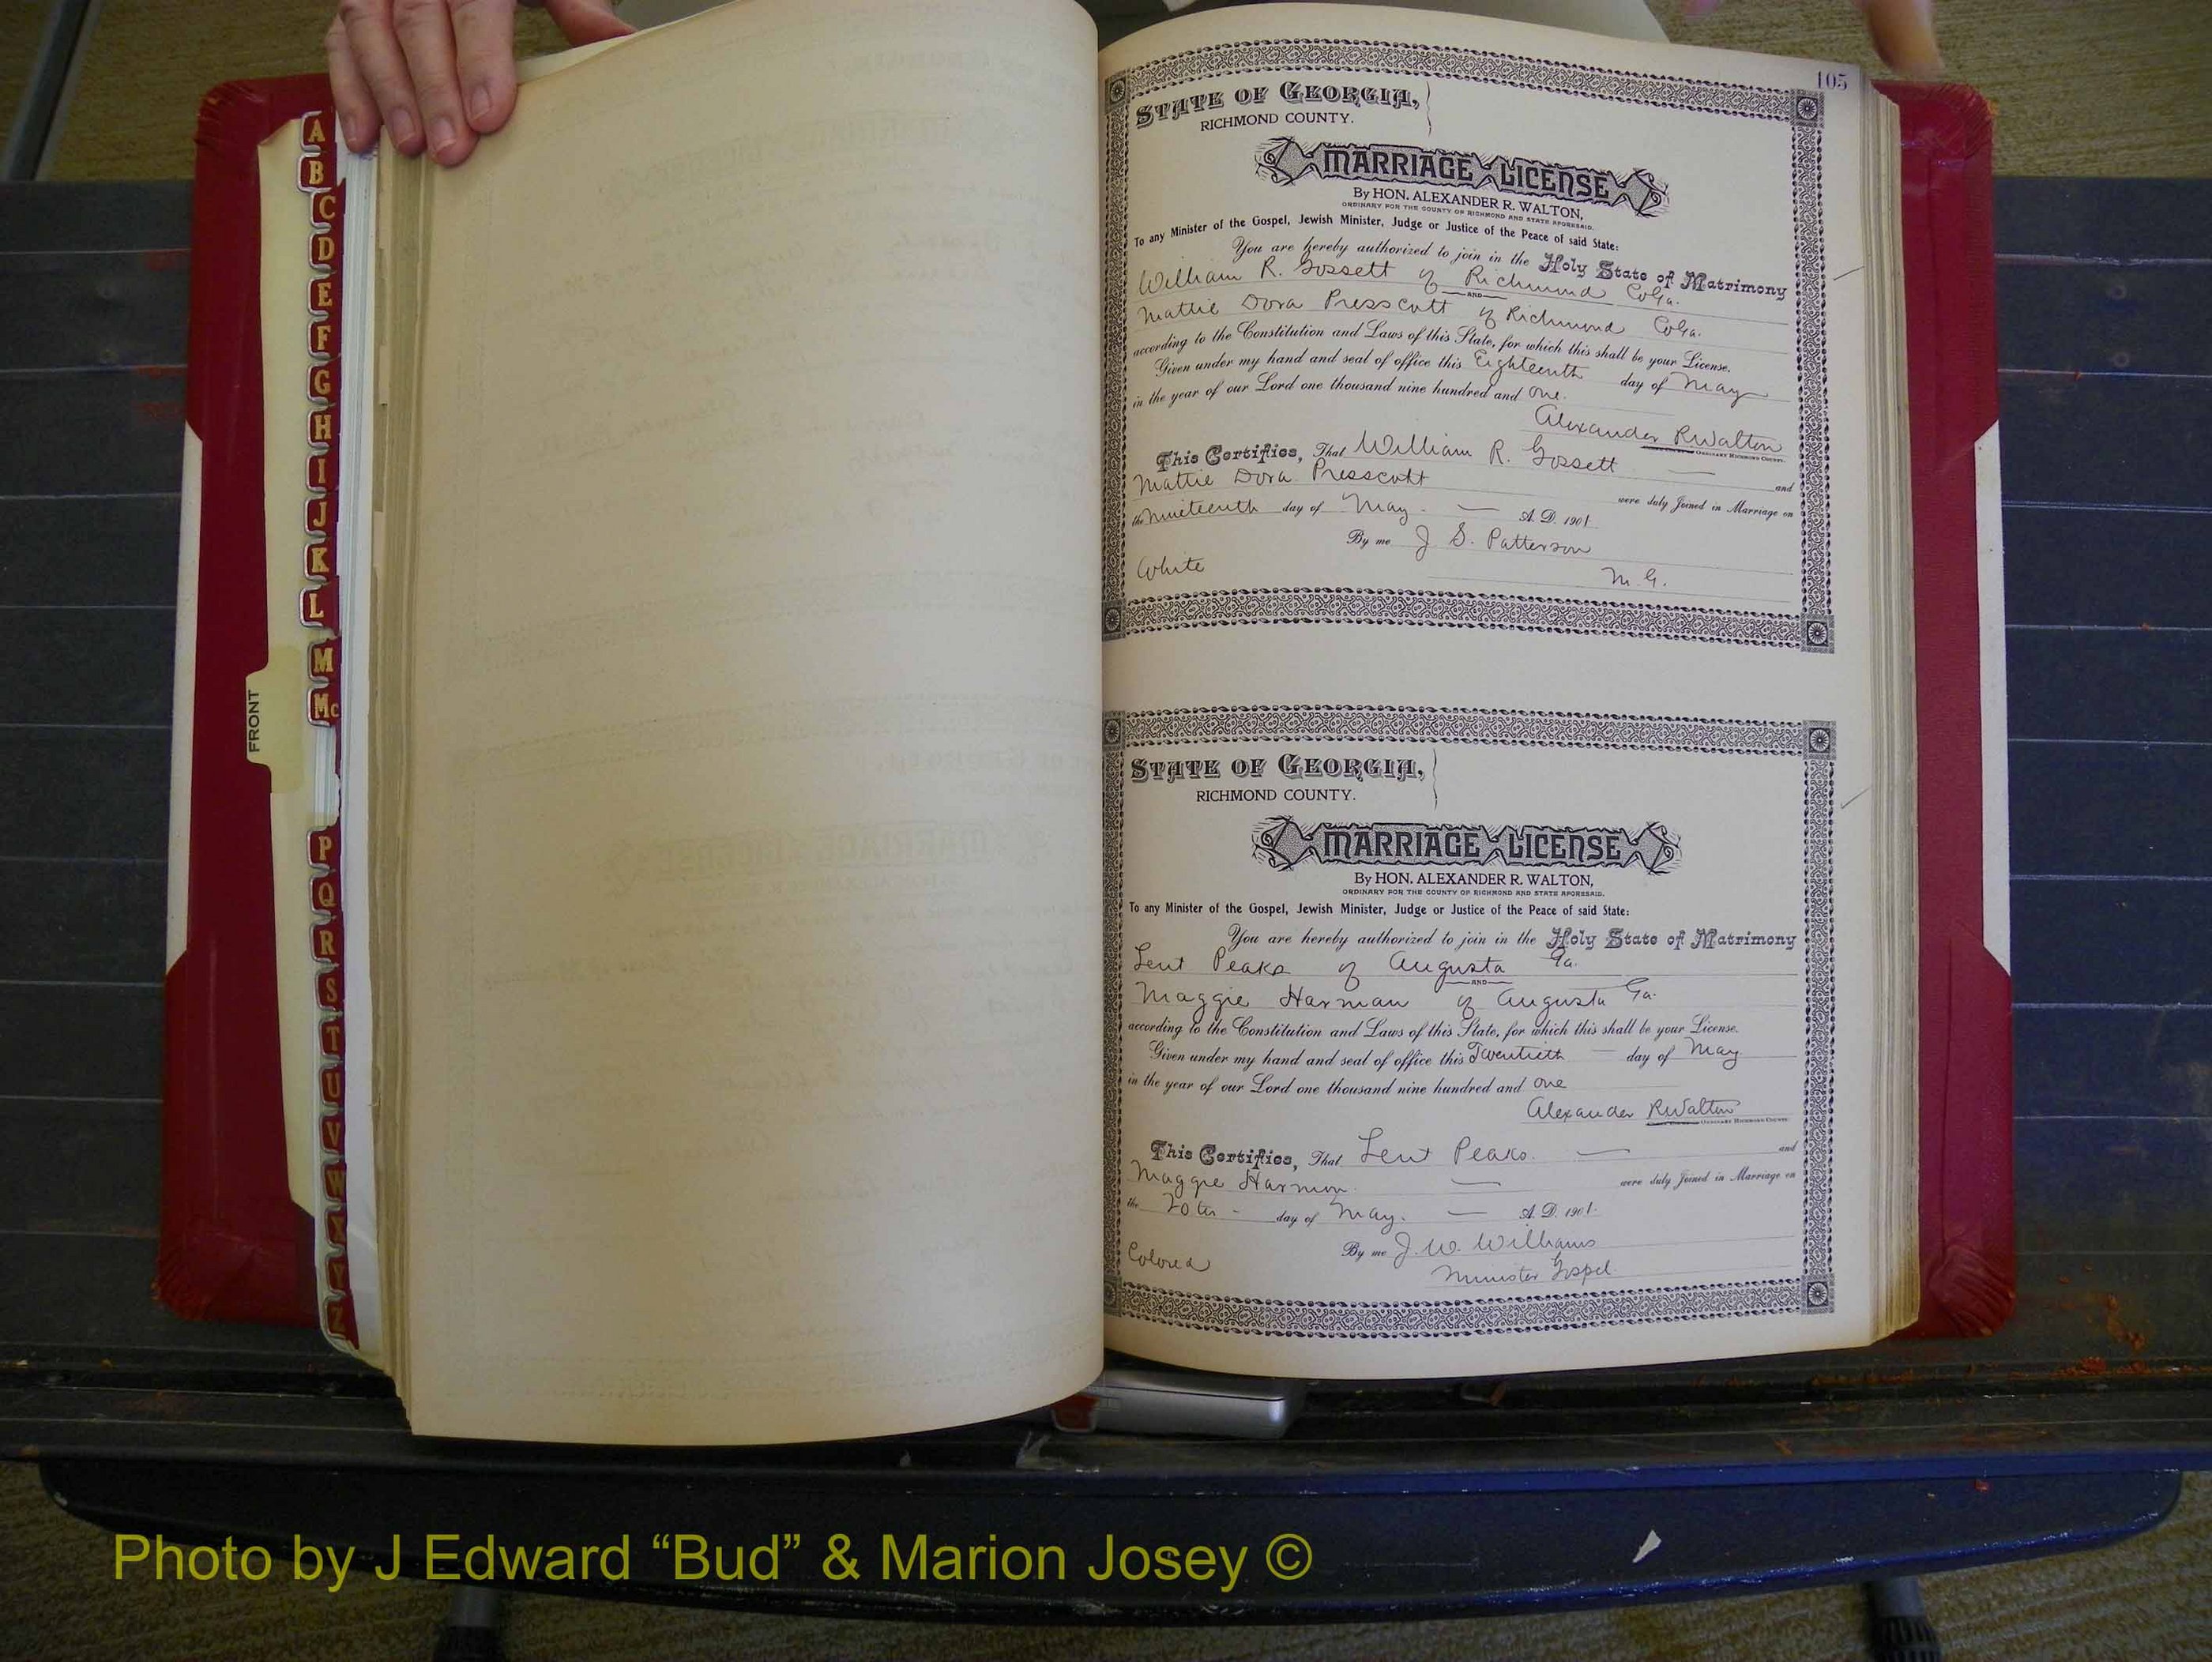 A
B
C
D
E
F
G
H
I
J
K
L
M
Mc
FRONT
P
Q
R
S
T
U
V
W
X
Y
Z
105
STATE OF GEORGIA,
RICHMOND COUNTY.
MARRIAGE LICENSE
By HON. ALEXANDER R. WALTON,
ORDINARY FOR THE COUNTY OF RICHMOND AND STATE AFORESAID.
To any Minister of the Gospel, Jewish Minister, Judge or Justice of the Peace of said State:
You are hereby authorized to join in the Holy State of Matrimony
William R. Gossett of Richmond Co Ga.
AND
Mattie Dora Presscott of Richmond Co Ga.
according to the Constitution and Laws of this State, for which this shall be your License.
Given under my hand and seal of office this Eighteenth day of May
in the year of our Lord one thousand nine hundred and one.
Alexander R Walton
ORDINARY RICHMOND COUNTY.
This Certifies, That William R. Gossett — and
Mattie Dora Presscott were duly Joined in Marriage on
the Nineteenth day of May. — A. D. 1901.
By me J S. Patterson
White M. G.
STATE OF GEORGIA,
RICHMOND COUNTY.
MARRIAGE LICENSE
By HON. ALEXANDER R. WALTON,
ORDINARY FOR THE COUNTY OF RICHMOND AND STATE AFORESAID.
To any Minister of the Gospel, Jewish Minister, Judge or Justice of the Peace of said State:
You are hereby authorized to join in the Holy State of Matrimony
Lent Peaks of Augusta Ga.
AND
Maggie Harman of Augusta Ga.
according to the Constitution and Laws of this State, for which this shall be your License.
Given under my hand and seal of office this Twentieth — day of May
in the year of our Lord one thousand nine hundred and one
Alexander R Walton
ORDINARY RICHMOND COUNTY.
This Certifies, That Lent Peaks. — and
Maggie Harmon — were duly Joined in Marriage on
the 20th - day of May. — A. D. 1901.
By me J. W. Williams
Colored Minister Gospel
Photo by J Edward “Bud” & Marion Josey ©